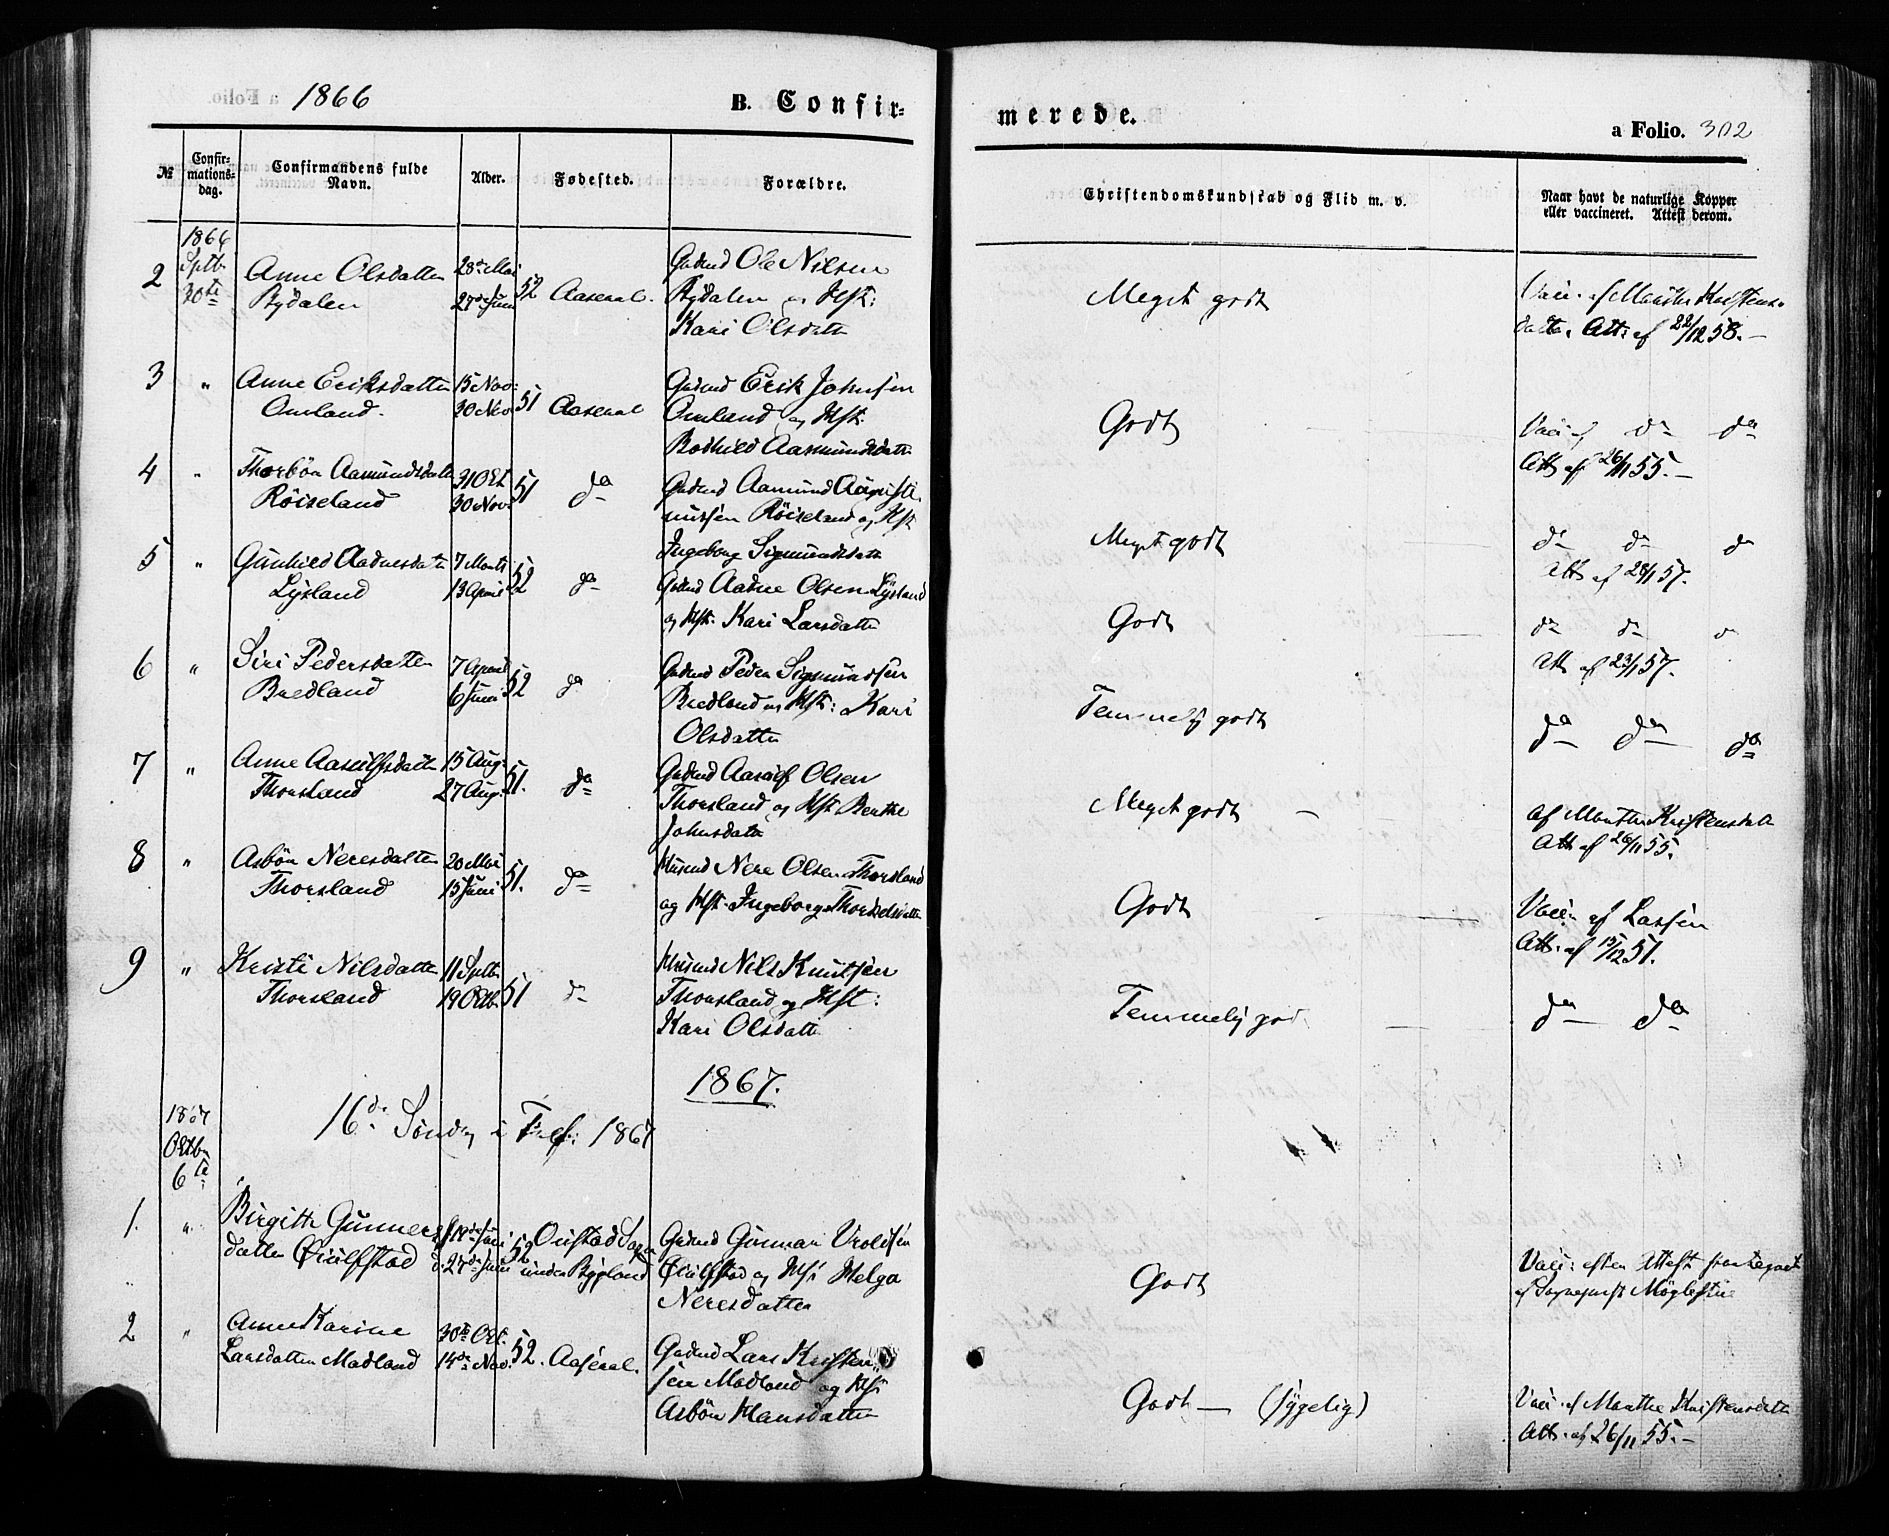 1866
B. Confir-
merede.
a Folio. 302
№
Confir-
mations-
dag.
Confirmandens fulde
Navn.
Alder.
Fødested.
Forældre.
Christendomskundskab og Flid m. v.
Naar havt de naturlige Kopper
eller vaccineret. Attest derom.
1866
Septb:
30te
2 Anne Olsdatter
28de Mai
27de Juni 52 Aaseral.
Gdmd Ole Nilsen
og Hst:
Kari Olsdatter
Meget godt
Vacc. af Marthe Kristens-
datter. Att: af 22/12 58.-
3 " Anne Eriksdatter
Omland.
15 Nov:
30 Nov. 51 Aaseral
Gdmd Erik Johnsen
Omland og Hst.
Bodhild Aasmundsdatter
Godt
Vacc: af do do
Att: af 26/11 55.-
4 " Thorbør Aamundsdatter
Røiseland
31 Okt
30 Nov. 51 do
Gdmd Aamund
Røiseland og Hst
Ingeborg Sigmundsdatter
Meget godt
do do do
Att: af 28/1 57.
5 " Gunhild Aadnesdatter
Lysland
7 Marts
13 April 52 do
Gdmd Aadne Olsen Lysland
og Hst: Kari Larsdatter
Godt
do do do
Att: af 23/1 57.
6 " Siri Pedersdatter
Bredland
7 April
6 Juni 52 do
Gdmd Peder Sigmundsen
Bredland og Hst: Kari
Olsdatter
Temmelig godt
do do do
7 " Anne Aasulfsdatter
Thorsland
15 Aug:
27 Aug: 51. do
Gdmd Aasulf Olsen
Thorsland og Hst Berthe
Johnsdatter
Meget godt -
af Marthe Kristensdatt
Att: af 26/11 55.
8 " Asbør Neresdatter
Thorsland
20 Mai
15 Juni 51. do
Husmd Nere Olsen Thorsland
og Hst. Ingeborg Thorkelsdatter
Godt
Vacc: af Lassen
Att: af 15/12 51.
9 " Kristi Nilsdatter
Thorsland
11 Septb:
19 Oktb. 51 do
Husmd Nils Knutsen
Thorsland og Hst:
Kari Olsdatter
Temmelig godt
do do
1867.
1867
Oktb:
6te
16de Søndag i Tref: 1867
1. " Birgitte Gunners-
datter Øiulfstad
f. 18de Juni
d. 27de Juni 52
Sogn
under Bygland
Gdmd Gunnar
Øiulfstad og Hst Helga
Neresdatter
Godt
Vacc: efter Attest
af Sognepræst Møglestue
2 " Anne Karine
Larsdatter Madland
30te Okt.
14de Nov. 52. Aaseral.
Gdmd Lars Kristen-
sen Madland og Hst
Asbør Hansdatter
Godt - (sygelig)
Vacc. af Marthe Kristensdatter
Att: af 26/11 55.-